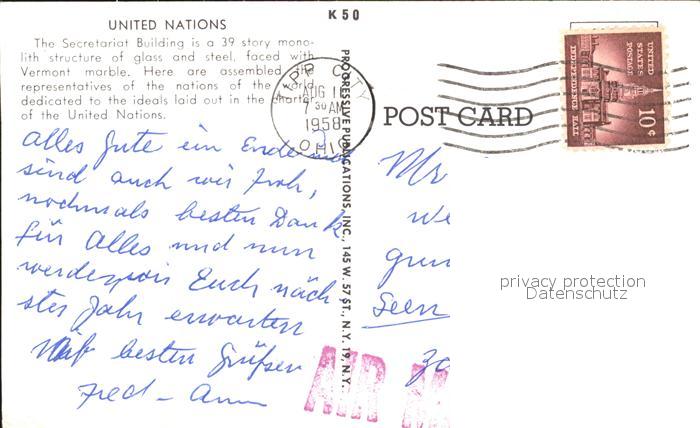 K50
UNITED NATIONS
The Secretariat Building is a 39 story mono-
lith structure of glass and steel, faced with
Vermont marble. Here are assembled the
representatives of the nations of the world
dedicated to the ideals laid out in the charter
of the United Nations.
Alles Gute ein Ende und
sind auch wir froh,
nochmals besten Dank
für Alles und nun
werden wir Euch näch-
stes Jahr erwarten
Mit besten Grüssen
Fred - Ann
PROGRESSIVE PUBLICATIONS, INC., 145 W. 57 ST., N. Y. 19, N. Y.
TIPP CITY
AUG 1
7 30 AM
1958
OHIO
POST CARD
UNITED
STATES
POSTAGE
INDEPENDENCE HALL
10¢
Mr
We
Seen
AIR
privacy protection
Datenschutz